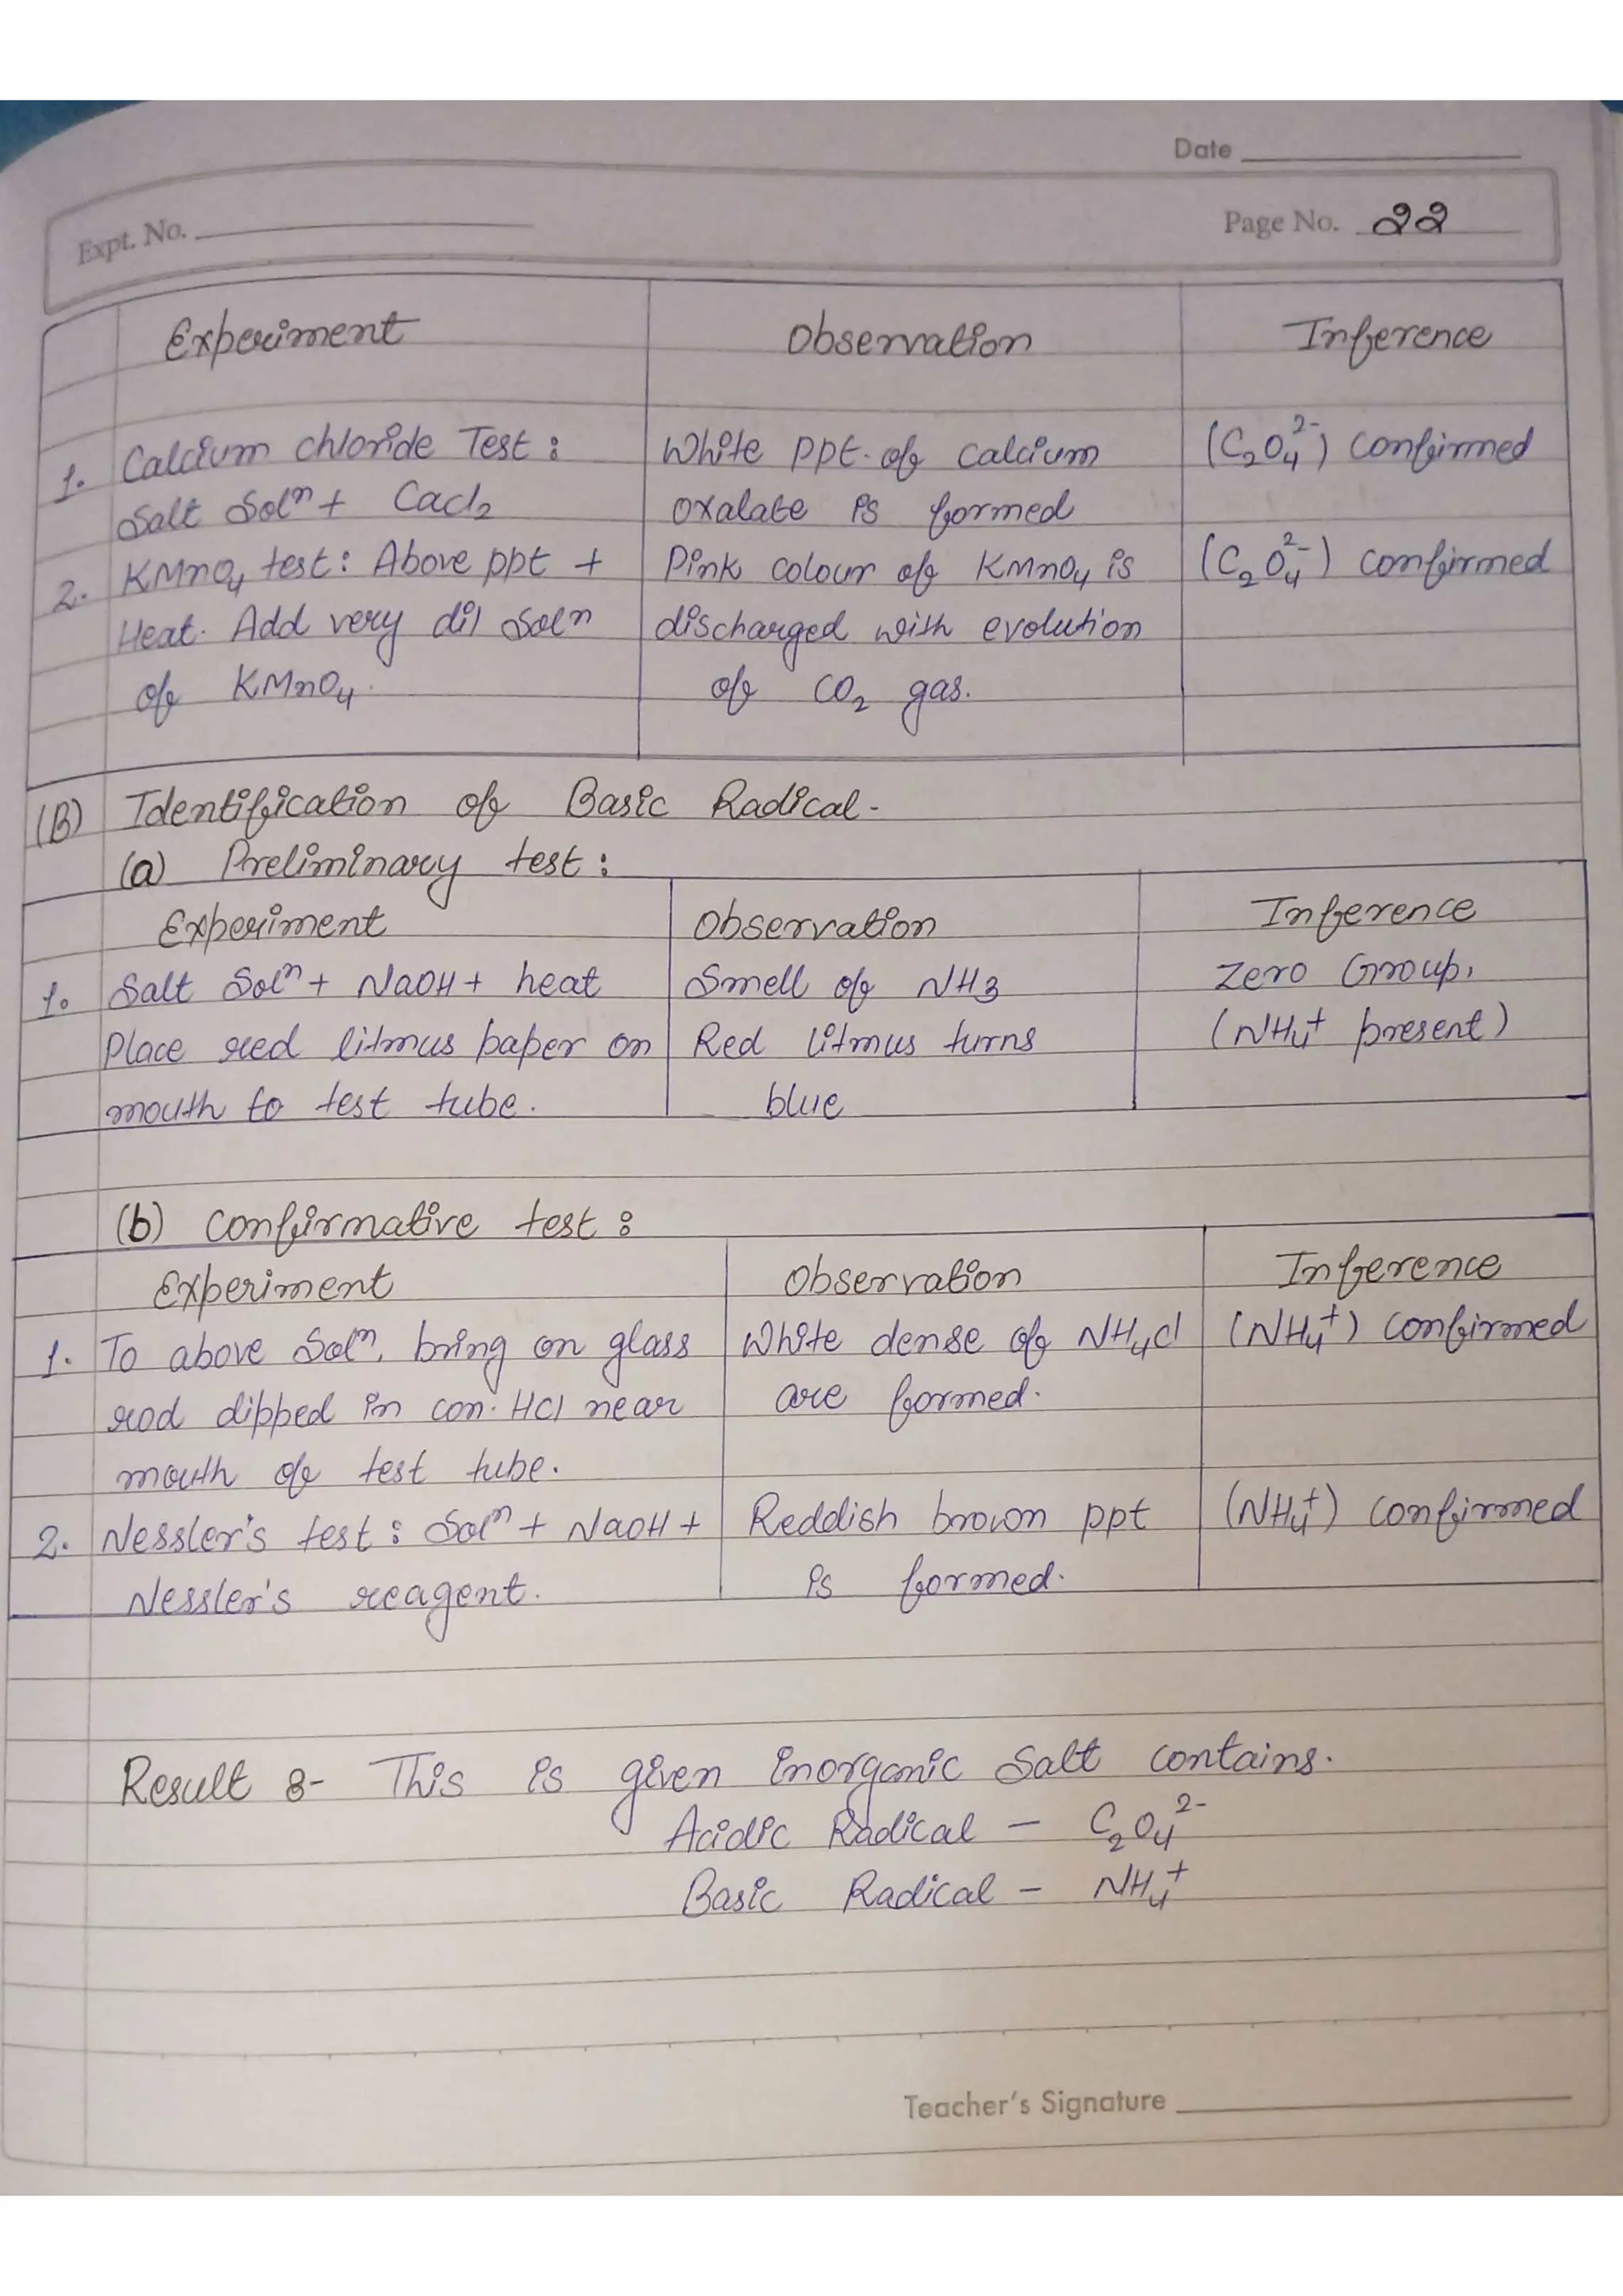 Date
Expt. No.
Page No. 22
Experiment Observation Inference
1. Calcium chloride Test : White ppt. of calcium (C₂O₄²⁻) confirmed
Salt Solⁿ + CaCl₂ oxalate is formed
2. KMnO₄ test : Above ppt + Pink colour of KMnO₄ is (C₂O₄²⁻) confirmed
Heat. Add very dil Solⁿ discharged with evolution
of KMnO₄. of CO₂ gas.
(B) Identification of Basic Radical -
(a) Preliminary test :
Experiment Observation Inference
1. Salt Solⁿ + NaOH + heat Smell of NH₃ Zero Group,
Place red litmus paper on Red litmus turns (NH₄⁺ present)
mouth to test tube. blue
(b) Confirmative test :
Experiment Observation Inference
1. To above Solⁿ, bring on glass White dense of NH₄Cl (NH₄⁺) confirmed
rod dipped in con. HCl near are formed.
mouth of test tube.
2. Nessler's test : Solⁿ + NaOH + Reddish brown ppt (NH₄⁺) confirmed
Nessler's reagent. is formed.
Result :- This is given inorganic Salt contains.
Acidic Radical - C₂O₄²⁻
Basic Radical - NH₄⁺
Teacher's Signature